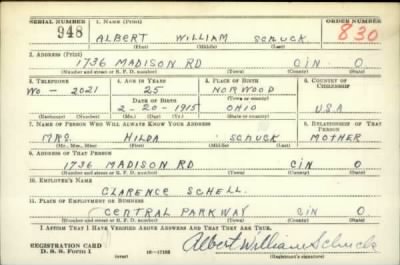 SERIAL NUMBER 1. NAME (Print) ORDER NUMBER
948 ALBERT WILLIAM SCHUCK 830
(First) (Middle) (Last)
2. ADDRESS (Print)
1736 MADISON RD CIN O.
(Number and street or R. F. D. number) (Town) (County) (State)
3. TELEPHONE 4. AGE IN YEARS 5. PLACE OF BIRTH 6. COUNTRY OF CITIZENSHIP
WO - 2021 25 NORWOOD
DATE OF BIRTH (Town or county)
2 - 20 - 1915 OHIO U.S.A
(Exchange) (Number) (Mo.) (Day) (Yr.) (State or country)
7. NAME OF PERSON WHO WILL ALWAYS KNOW YOUR ADDRESS 8. RELATIONSHIP OF THAT PERSON
MRS. HILDA SCHUCK MOTHER
(Mr., Mrs., Miss) (First) (Middle) (Last)
9. ADDRESS OF THAT PERSON
1736 MADISON RD CIN O
(Number and street or R. F. D. number) (Town) (County) (State)
10. EMPLOYER'S NAME
CLARENCE SCHELL.
11. PLACE OF EMPLOYMENT OR BUSINESS
CENTRAL PARKWAY CIN O
(Number and street or R. F. D. number) (Town) (County) (State)
I AFFIRM THAT I HAVE VERIFIED ABOVE ANSWERS AND THAT THEY ARE TRUE.
REGISTRATION CARD
D. S. S. Form 1 (over) 16—17105 Albert William Schuck
(Registrant's signature)